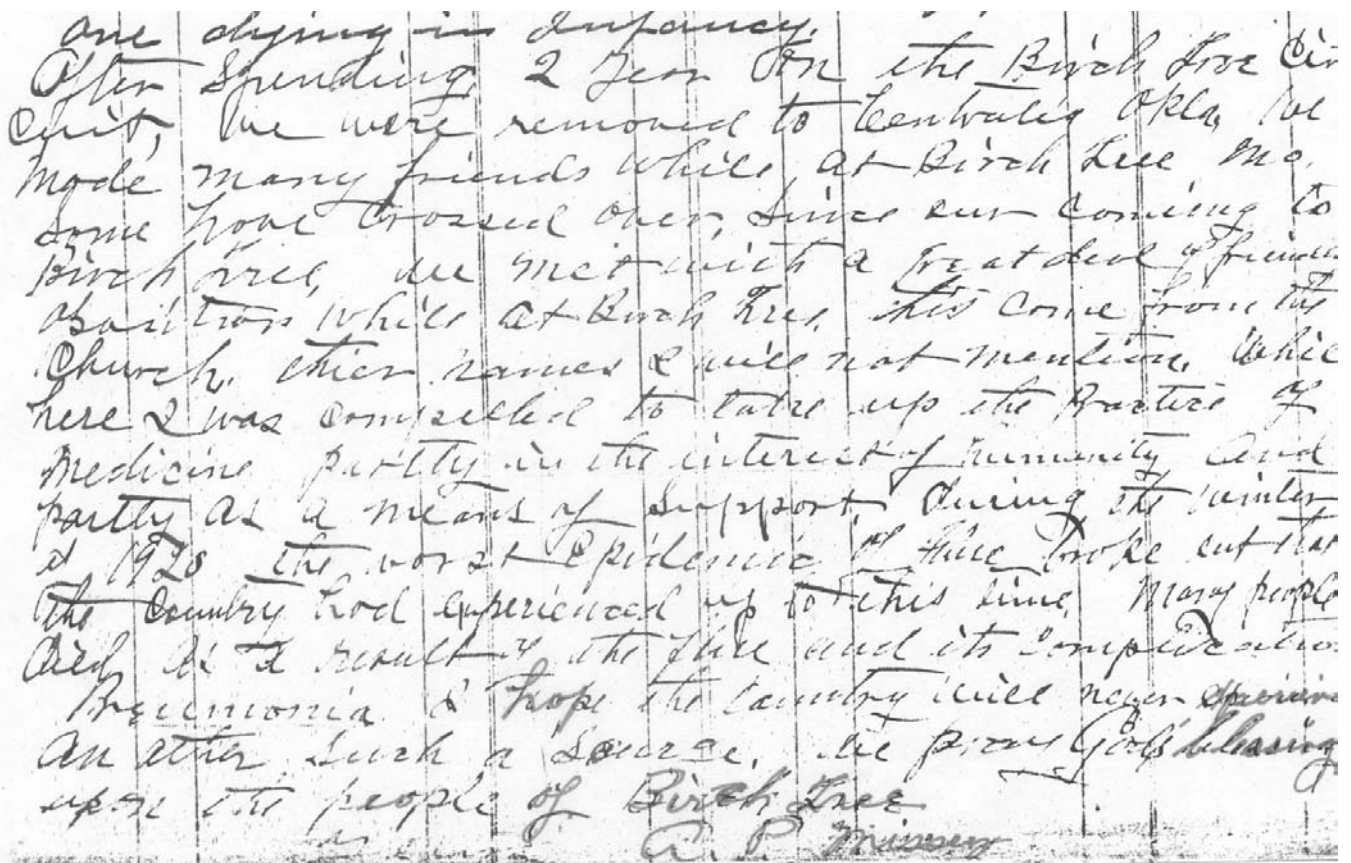 one dying in Infancy.
After Spending 2 Year On the Birch Tree Cir
cuit, we were removed to Centralia Okla, we
made many friends while at Birch Tree Mo.
Some have Crossed over, Since our coming to
Birch Tree, we met with a great deal of
while at Birch Tree, this come from the
Church, thier names I will not mention, While
here I was compelled to take up the Practice of
Medicine partly in the interest of humanity and
partly as a means of Support during the winter
of 1920 the worst Epidemic of flue broke out that
the Country had experienced up to this time, Many people
died as a result of the flue and its Complication
I hope the Country will never
an other such a we pray God's blessing
upon the people of Birch Tree
A. P.